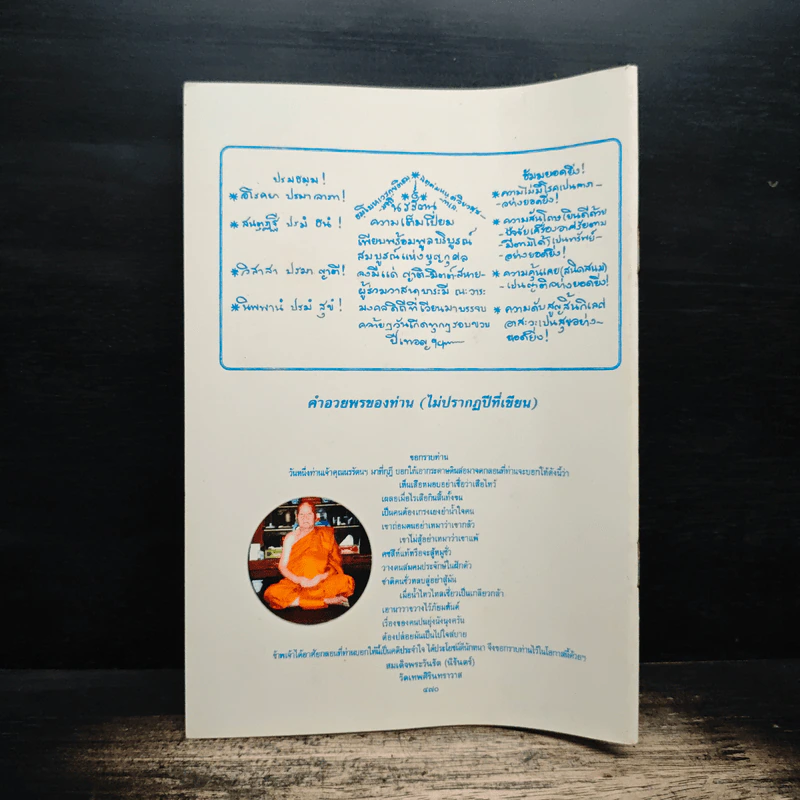 ปรมธมฺม!
*อโรคยา ปรมาลาภา!
*สนฺตุฏฺฐี ปรมํ ธนํ!
*วิสาสา ปรมา ญาตี!
*นิพพานํ ปรมํ สุขํ!
ความเต็มเปี่ยม
เพียบพร้อมพูลบริบูรณ์
สมบูรณ์แห่งบุญกุศล
จงมีแด่ ญาติ-มิตต์-สหาย-
ผู้ร่วมวาสนาบารมี ณะวาระ
มงคลดิถีที่เวียนมาบรรจบ
คล้ายๆวันเกิดทุกๆรอบขวบ
ปีเทอญ
ธัมมยอดยิ่ง!
*ความไม่มีโรคเป็นลาภ-
-อย่างยอดยิ่ง!
*ความสันโดษยินดีด้วย
ปัจจัยเครื่องอาศัยตาม
มีตามได้เป็นทรัพย์-
-อย่างยอดยิ่ง!
*ความคุ้นเคย(สนิดสนม)
-เป็นญาติอย่างยอดยิ่ง!
*ความดับสูญสิ้นกิเลส
อาสะวะเป็นสุขอย่าง-
ยอดยิ่ง!
คำอวยพรของท่าน (ไม่ปรากฏปีที่เขียน)
ขอกราบท่าน
วันหนึ่งท่านเจ้าคุณนรรัตนฯ มาที่กุฏิ บอกให้เอากระดาษดินสอมาจดกลอนที่ท่านจะบอกให้ดังนี้ว่า
เห็นเสือหมอบอย่าเชื่อว่าเสือไหว้
เผลอเมื่อไรเสือกินสิ้นทั้งขน
เป็นคนต้องเกรงเยงยำน้ำใจคน
เขาถ่อมตนอย่าเหมาว่าเขากลัว
เขาไม่สู้อย่าเหมาว่าเขาแพ้
คชสีห์แท้หรือจะสู้หมูชั่ว
วางตนสมคมประจักษ์ในฝักตัว
ชาติคนชั่วหลบลู่อย่าสู้มัน
เมื่อน้ำไหวไหลเชี่ยวเป็นเกลียวกล้า
เอานาวาขวางไว้ภัยมหันต์
เรื่องของคนปนยุ่งนังนุงครัน
ต้องปล่อยมันเป็นไปใจสบาย
ข้าพเจ้าได้อาศัยกลอนที่ท่านบอกให้นี้เป็นคติประจำใจ ได้ประโยชน์ดีนักหนา จึงขอกราบท่านไว้ในโอกาสนี้ด้วยฯ
สมเด็จพระวันรัต (นิรันตร์)
วัดเทพศิรินทราวาส
๔๗๐